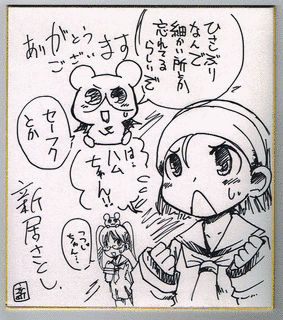 ひさしぶり
なんで
細かい所とか
忘れてる
らしいぞ
ありがとう
ございます
セーラフク
とか
は…
ハム
ちゃん!!
新居さとし